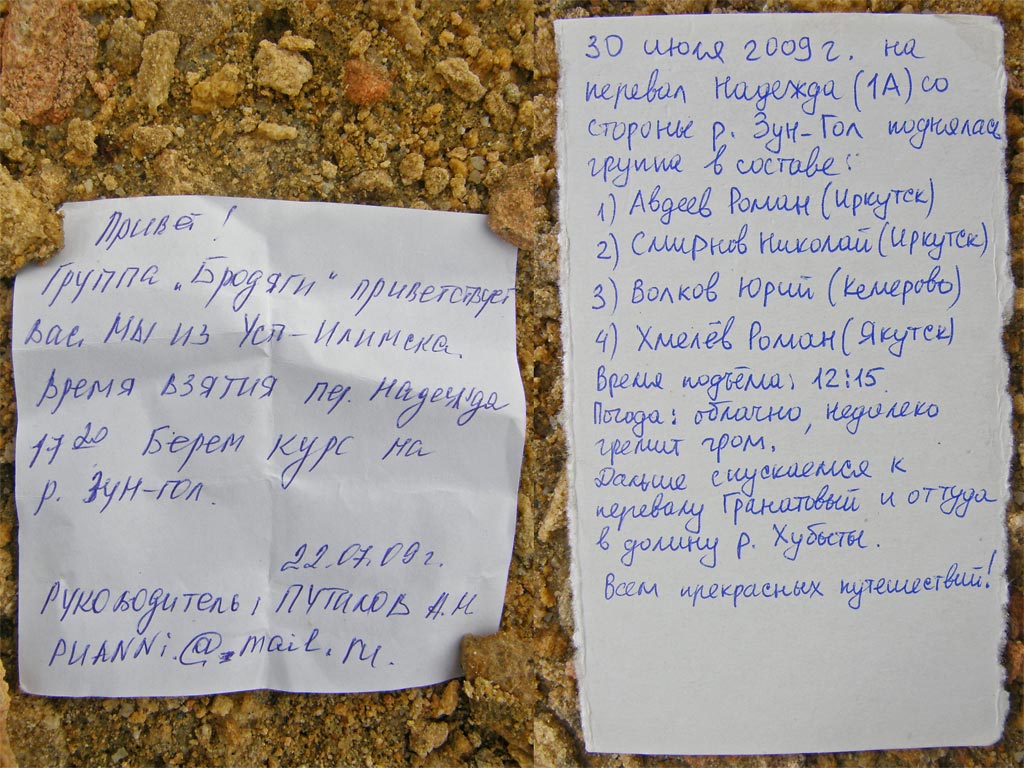 Привет!
Группа „Бродяги“ приветствует
Вас. Мы из Усп-Илимска.
Время взятия пер. Надежда
17 20 Берем курс на
р. Зун-гол.
22.07.09г.
Руководитель: ПУТАЛОВ А.Н
PUANNi.@mail.ru.
30 июля 2009 г. на
перевал Надежда (1А) со
стороны р. Зун-Гол поднялась
группа в составе:
1) Авдеев Роман (Иркутск)
2) Смирнов Николай (Иркутск)
3) Волков Юрий (Кемерово)
4) Хмелёв Роман (Якутск)
Время подъёма: 12:15.
Погода: облачно, недалеко
гремит гром.
Дальше спускаемся к
перевалу Гранатовый и оттуда
в долину р. Хубыты.
Всем прекрасных путешествий!